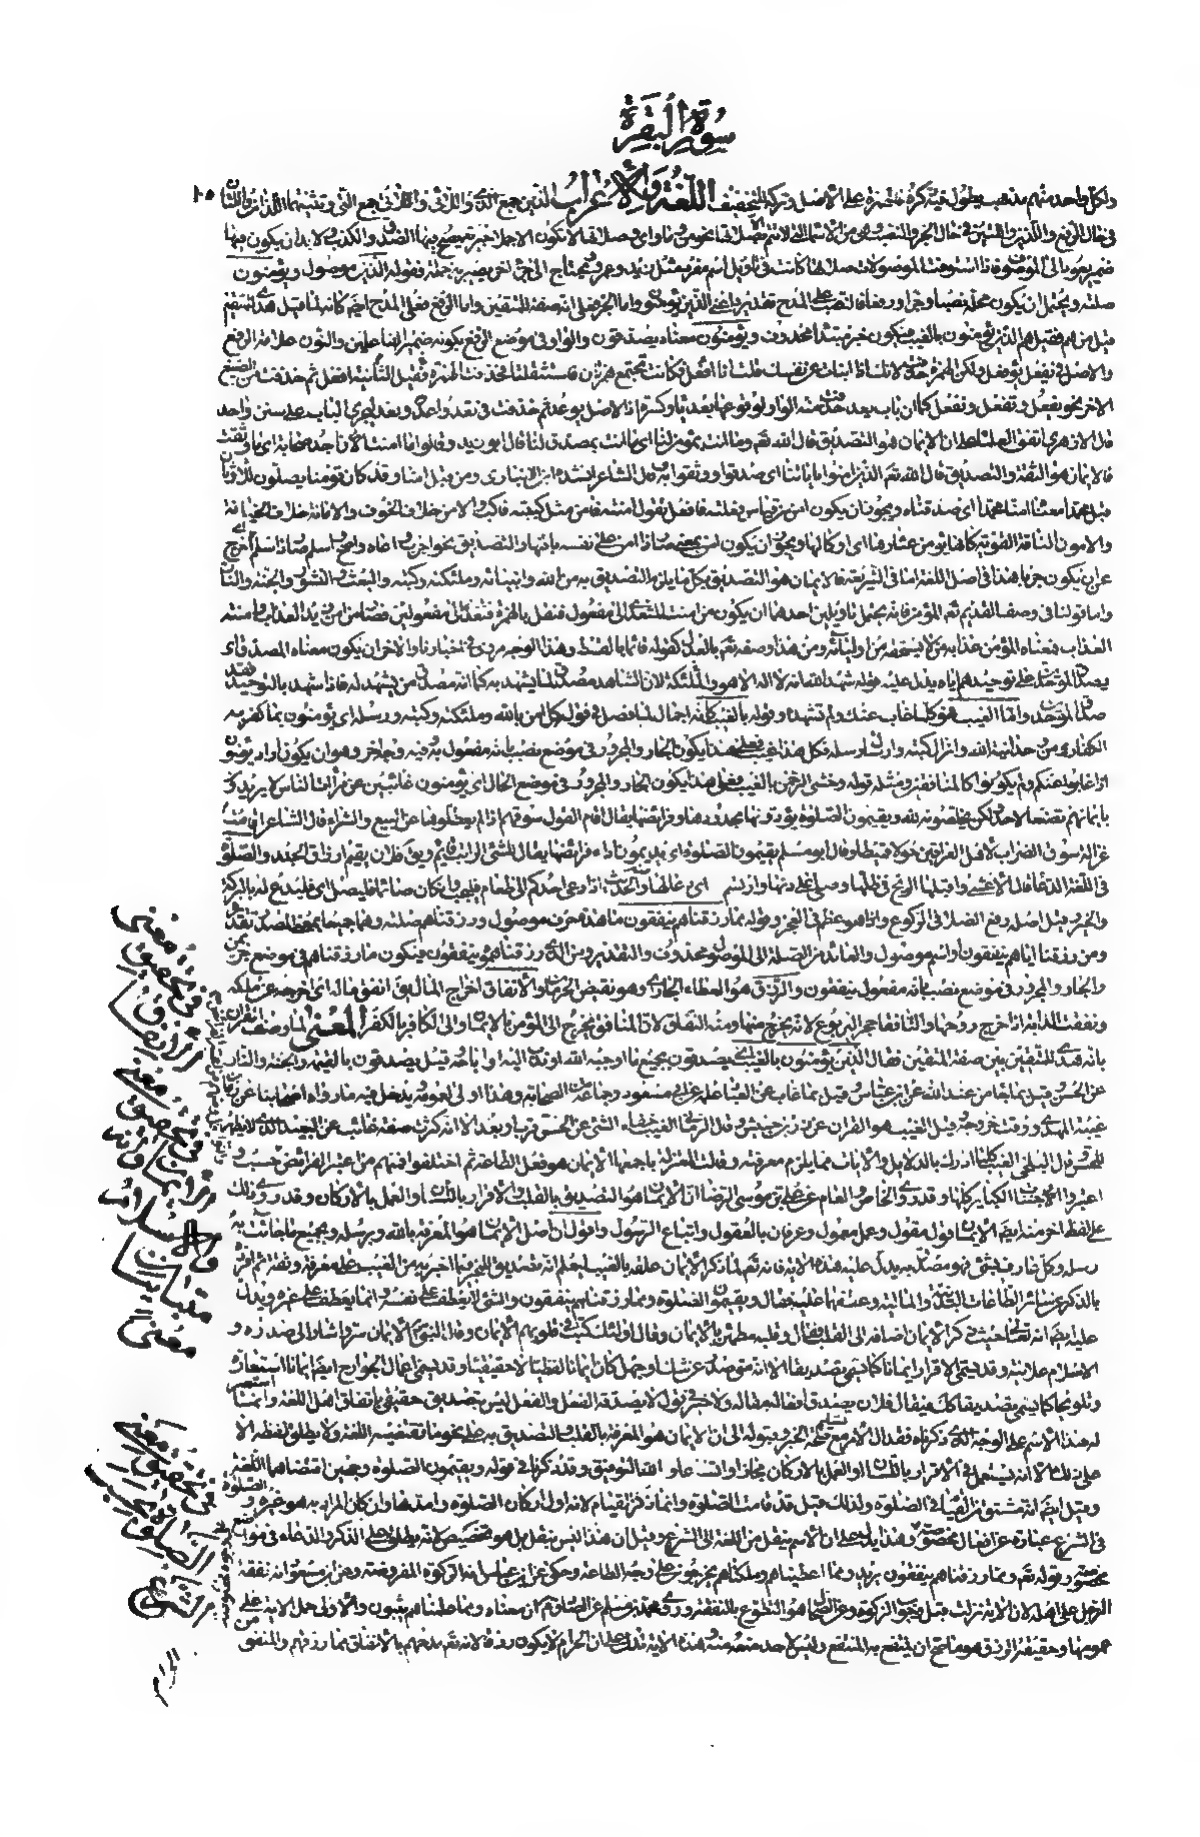 سورة البقرة
١٥
ولكل واحد منهم مذهب يطول فيه ذكره فالهمزة على الاصل وتركه للتخفيف اللغة والاعراب الذين جمع الذي واللائي واللاتي جمع التي وتثنيتهما اللذان واللتان
في حال الرفع واللذين واللتين في حال الجر والنصب وهي من الاسماء التي لا تتم الا بصلاتها نحو من وما واي وصلاتها لا تكون الا جملا خبرية يصح فيها الصدق والكذب ولابد ان يكون فيها
ضمير يعود الى الموصول فاذا استوفت الموصولات صلاتها كانت في تأويل اسم مفرد مثل زيد وعمرو ويحتاج الى جزء اخر يصير به جملة فقوله الذين موصول ويؤمنون
صلته ويحتمل ان يكون محله نصبا وجرا ورفعا فالنصب على المدح تقديره اعني الذين يؤمنون واما الجر فعلى انه صفة للمتقين واما الرفع فعلى المدح ايضا كانه لما قيل هدى للمتقين
قيل من هم فقيل هم الذين يؤمنون بالغيب فيكون خبر مبتدأ محذوف ويؤمنون معناه يصدقون والواو في موضع الرفع بكونه ضمير الفاعلين والنون علامة الرفع
والاصل في يفعل يؤفعل ولكن الهمزة حذفت لانك اذا انبأت عن نفسك قلت انا اأفعل فكانت تجتمع همزتان فاستثقلتا فحذفت الهمزة الثانية فقيل افعل ثم حذفت من الصيغ
الاخر نحو يفعل وتفعل ونفعل كما ان باب يعد حذفت منه الواو لوقوعها بعد ياء وكسرة اذ الاصل يوعد ثم حذفت في تعد واعد ونعد ليجري الباب على سنن واحد
قال الازهري اتفق العلماء على ان الايمان هو التصديق قال الله تعم وما انت بمؤمن لنا اي ما انت بمصدق لنا قال ابو زيد وقالوا ما امنت ان اجد صحابة اي ما وثقت
فالايمان هو الثقة والتصديق قال الله تعم الذين امنوا باياتنا اي صدقوا ووثقوا بها قال الشاعر انشده ابن الانباري ومن قبل امنا وقد كان قومنا يصلون للاوثان
قبل محمدا معناه امنا محمدا اي صدقناه ويجوز ان يكون امن من قياس فعلته فافعل تقول امنته فامن مثل كببته فاكب والامن خلاف الخوف والامانة خلاف الخيانة
والامون الناقة القوية
عن ان يكون حربا هذا في اصل اللغة اما في الشريعة فالايمان هو التصديق بكل ما يلزم التصديق به من الله وانبيائه وملائكته وكتبه والبعث والنشور والجنة والنار
واما قولنا في وصف القديم تعم المؤمن فانه يحتمل تأويلين احدهما ان يكون من امنت المتعدي الى مفعول فنقل بالهمزة فتعدى الى مفعولين فصار من امن زيد العذاب وامنته
العذاب فمعناه المؤمن عذابه من لا يستحقه من اوليائه ومن هذا وصفه تعم بالعدل كقوله قائما بالقسط وهذا الوجه مروي في اخبارنا والاخر ان يكون معناه المصدق اي
يصدق الموحدين على توحيدهم اياه يدل عليه قوله شهد الله انه لا اله الا هو والملائكة لان الشاهد مصدق لما يشهد به كما انه مصدق من يشهد له فاذا شهد بالتوحيد فقد
صدق الموحدين واما الغيب فهو كلما غاب عنك ولم تشهده وقوله بالغيب كانه اجمال لما فصل في قوله كل امن بالله وملائكته وكتبه ورسله اي يؤمنون بما كفر به
الكفار من وحدانية الله وانزال كتبه وارسال رسله فكل هذا غيب فعلى هذا يكون الجار والمجرور في موضع نصب بانه مفعول به وفيه وجه اخر وهو ان يكون اراد يؤمنون
اذا غابوا عنكم ولم يكونوا كالمنافقين ومثله قوله وخشي الرحمن بالغيب فعلى هذا يكون الجار والمجرور في موضع الحال اي يؤمنون غائبين عن مراءاة الناس لا يريدون
بايمانهم تصنعا لاحد لكن يخلصونه لله ويقيمون الصلوة يؤدونها بحدودها وفرائضها يقال اقام القوم سوقهم اذا لم يعطلوها عن البيع والشراء قال الشاعر اقامت
غزالة سوق الضراب لاهل العراقين حولا قميطا وقال ابو مسلم يقيمون الصلوة اي يديمون اداء فرائضها يقال للشيء الراتب قائم ويق فلان يقيم ارزاق الجند والصلوة
في اللغة الدعاء قال الاعشى وقابلها الريح في دنها وصلى على دنها وارتسم اي دعا لها والحديث اذا دعي احدكم الى طعام فليجب وان كان صائما فليصل اي فليدع له بالبركة
والخير وقيل اصله رفع الصلا في الركوع وهو عظم في العجز وقوله مما رزقناهم ينفقون ما هذه حرف موصول ورزقناهم صلته وهما جميعا بمعنى المصدر تقديره
ومن رزقنا اياهم ينفقون او اسم موصول والعائد من الصلة الى الموصول محذوف والتقدير ومن الذي رزقناهموه ينفقون فيكون ما رزقناهم في موضع جر بمن
والجار والمجرور في موضع نصب بانه مفعول ينفقون والرزق هو العطاء الجاري وهو نقيض الحرمان والانفاق اخراج المال يق انفق ماله اي اخرجه عن ملكه
ونفقت الدابة اذا خرج روحها والنافقاء جحر اليربوع لانه يخرج منها ومنه النفاق لان المنافق يخرج الى المؤمن بالايمان والى الكافر بالكفر المعنى لما وصف القران
بانه هدى للمتقين بين صفة المتقين فقال الذين يؤمنون بالغيب اي يصدقون بجميع ما اوجبه الله او ندب اليه او اباحه وقيل يصدقون بالقيمة والجنة والنار
عن الحسن وقيل بما جاء من عند الله عن ابن عباس وقيل بما غاب عن العباد علمه عن ابن مسعود وجماعة من الصحابة وهذا اولى لعمومه ويدخل فيه ما رواه اصحابنا من زمان
غيبة المهدي ووقت خروجه وقيل الغيب هو القران عن زر بن حبيش وقال الرماني الغيب خفاء الشيء عن الحس قرب او بعد الا انه كثرت صفة غائب عن البعيد الذي لا يظهر
للحس قال البلخي الغيب كلما ادرك بالدلائل والايات مما يلزم معرفته وقالت المعتزلة باجمعها الايمان هو فعل الطاعة ثم اختلفوا فمنهم من اعتبر الفرائض حسب و
اعتبروا اجتناب الكبائر كلها وقد روى الخاص والعام عن علي بن موسى الرضا ان الايمان هو التصديق بالقلب والاقرار باللسان والعمل بالاركان وقد روي ذلك
على لفظ اخر منه ايضا الايمان قول مقول وعمل معمول وعرفان بالعقول واتباع الرسول واقول ان اصل الايمان هو المعرفة بالله وبرسله وبجميع ما جاءت به
رسله وكل عارف بشيء فهو مصدق به يدل عليه هذه الاية فانه تعم لما ذكر الايمان علقه بالغيب ليعلم انه تصديق للمخبر فيما اخبر به من الغيب على معرفة وثقة ثم افرده
بالذكر عن سائر الطاعات البدنية والمالية وعطفهما عليه فقال ويقيمون الصلوة ومما رزقناهم ينفقون والشيء لا يعطف على نفسه وانما يعطف على غيره ويدل
عليه ايضا انه تعالى حيث ذكر الايمان اضافه الى القلب فقال وقلبه مطمئن بالايمان وقال اولئك كتب في قلوبهم الايمان وقال النبي ص الايمان سر واشار الى صدره و
الاسلام علانية وقد يسمى الاقرار ايمانا كما يسمى تصديقا الا انه متى صدر عن شك او جهل كان ايمانا لفظيا لا حقيقيا وقد يسمى اعمال الجوارح ايضا ايمانا استعارة
وتلويحا كما يسمى تصديقا كك فيقال فلان يصدق افعاله مقاله ولا خير في قول لا يصدقه الفعل والفعل ليس بتصديق حقيقي باتفاق اهل اللغة وانما استعير
له هذا الاسم على الوجه الذي ذكرناه فقد ال الامر مع تسليم صحة الخبر وقبوله الى ان الايمان هو المعرفة بالقلب والتصديق به على نحو ما تقتضيه اللغة ولا يطلق لفظه الا
على ذلك الا انه يستعمل في الاقرار باللسان والعمل بالاركان مجازا واتساعا وبالله التوفيق وقد ذكرنا في قوله ويقيمون الصلوة وجهين اقتضاهما اللغة
وقيل ايضا انه مشتق من القيام في الصلوة ولذلك قيل قد قامت الصلوة وانما ذكر القيام لانه اول اركان الصلوة وامدها وان كان المراد به هو وغيره والصلوة
في الشرع عبارة عن افعال مخصوصة وهذا يدل على ان الاسم ينقل من اللغة الى الشرع وقيل ان هذا ليس بنقل بل هو تخصيص لانه يطلق على الذكر والدعاء في مواضع
مخصوصة وقوله تعم ومما رزقناهم ينفقون يريد ومما اعطيناهم وملكناهم يخرجون على وجه الطاعة وحكي عن ابن عباس انه الزكوة المفروضة وعن ابن مسعود انه نفقة
الرجل على اهله لان الاية نزلت قبل وجوب الزكوة وعن الضحاك هو التطوع بالنفقة وروى محمد بن مسلم عن الصادق ع ان معناه ومما علمناهم يبثون والاولى حمل الاية على
عمومها وحقيقة الرزق هو ما صح ان ينتفع به المنتفع وليس لاحد منعه منه وهذه الاية تدل على ان الحرام لا يكون رزقا لانه تعم مدحهم بالانفاق مما رزقهم والمنفق من
في تحقيق معنى الرزق
في تحقيق معنى الايمان وانه والاسلام متباينان معنى
في تحقيق معنى الصلوة بحسب الشرع
الحرام